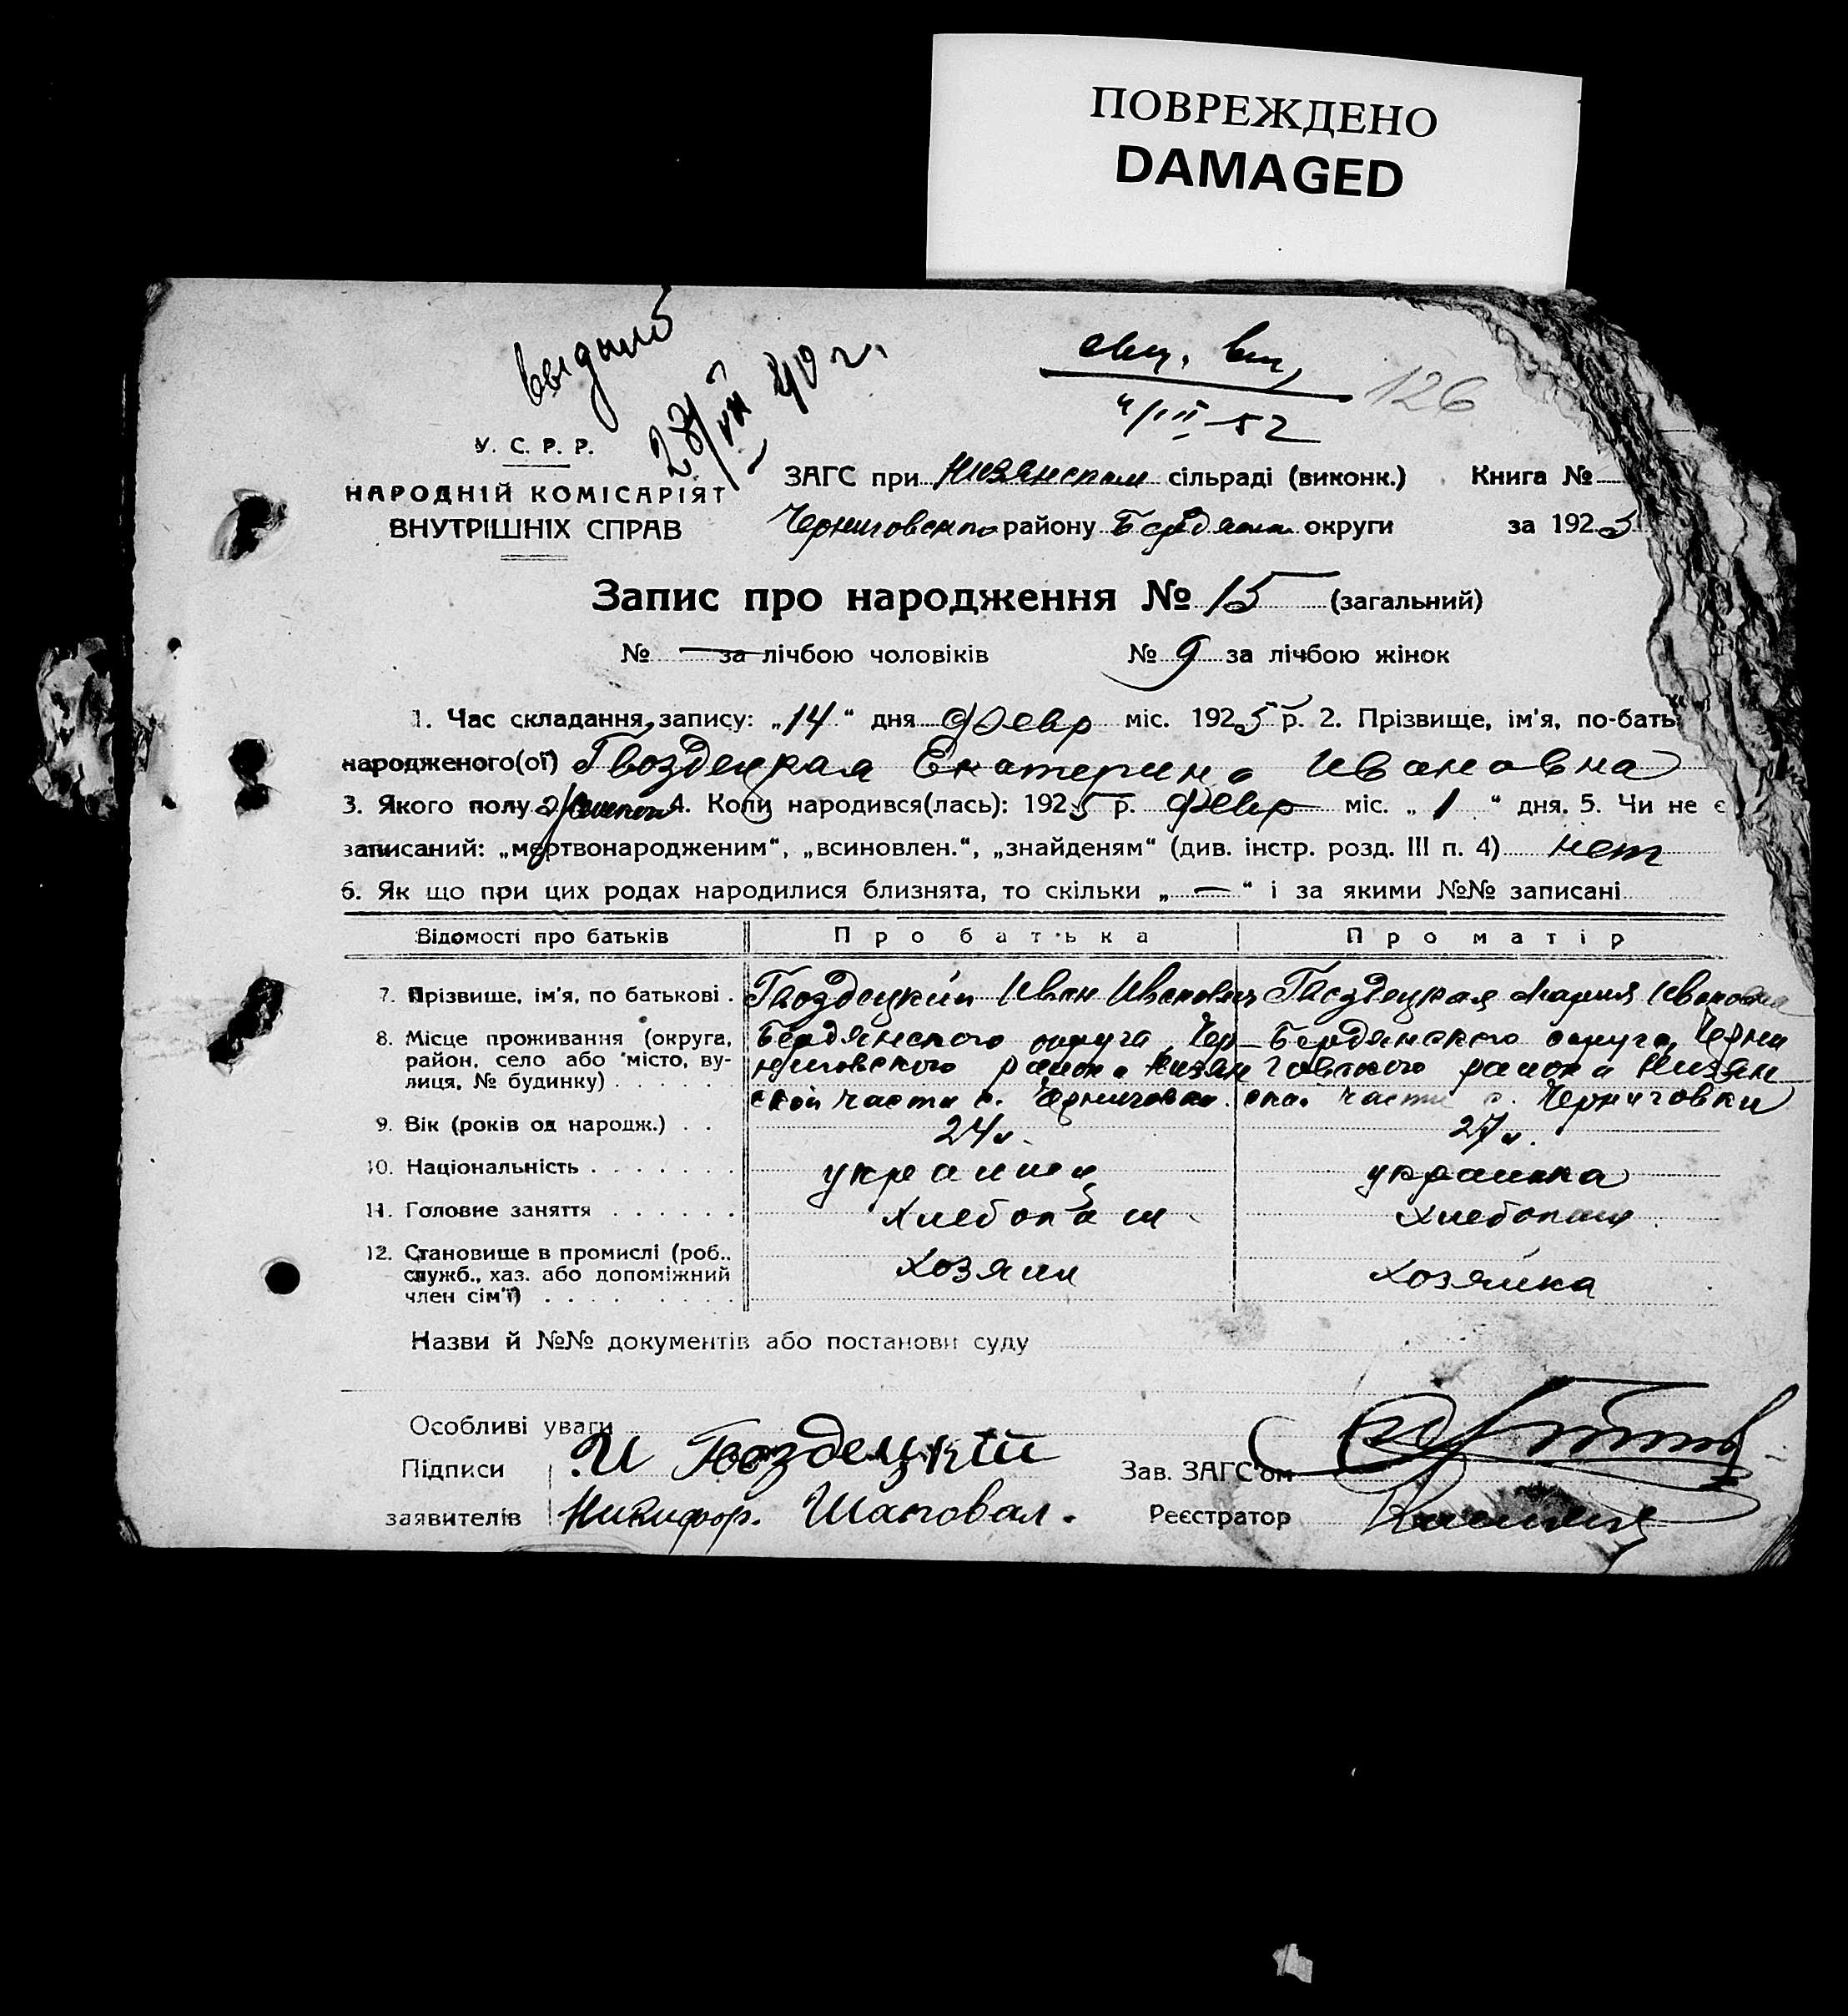 ПОВРЕЖДЕНО
DAMAGED
выдано
28/VII 40 г.
свид. выд.
4/III-52
126
У. С. Р. Р.
НАРОДНІЙ КОМІСАРІЯТ
ВНУТРІШНІХ СПРАВ
ЗАГС при Низянском сільраді (виконк.) Книга №
Черниговского району Бердянск округи за 1925
Запис про народження № 15 (загальний)
№ — за лічбою чоловіків № 9 за лічбою жінок
1. Час складання запису: „14“ дня Февр міс. 1925 р. 2. Прізвище, ім'я, по-бать
народженого(ої) Гвоздецкая Екатерина Ивановна
3. Якого полу женского 4. Коли народився(лась): 1925 р. Февр міс. „1“ дня. 5. Чи не є
записаний: „мертвонародженим“, „всиновлен.“, „знайденям“ (див. інстр. розд. III п. 4) нет
6. Як що при цих родах народилися близнята, то скільки „—“ і за якими №№ записані
Відомості про батьків Про батька Про матір
7. Прізвище, ім'я, по батькові . Гвоздецкий Иван Иванович Гвоздецкая Мария Ивановна
8. Місце проживання (округа, район, село або місто, вулиця, № будинку) . . . . . .
Бердянского округа Чер-
ниговского района Низян
ской части с. Черниговки.
Бердянского округа Черни
говского района Низян
ской части с. Черниговки
9. Вік (років од народж.) . . 24 л. 27 л.
10. Національність . . . . . . . украинец украинка
11. Головне заняття . . . . . . хлебопаш. хлебопаш.
12. Становище в промислі (роб., служб., хаз. або допоміжний член сім'ї) . . . . . . . . хозяин хозяйка
Назви й №№ документів або постанови суду
Особливі уваги
Підписи И Гвоздецкій Зав. ЗАГС'ом
заявителів Никифор. Шаповал. Реєстратор